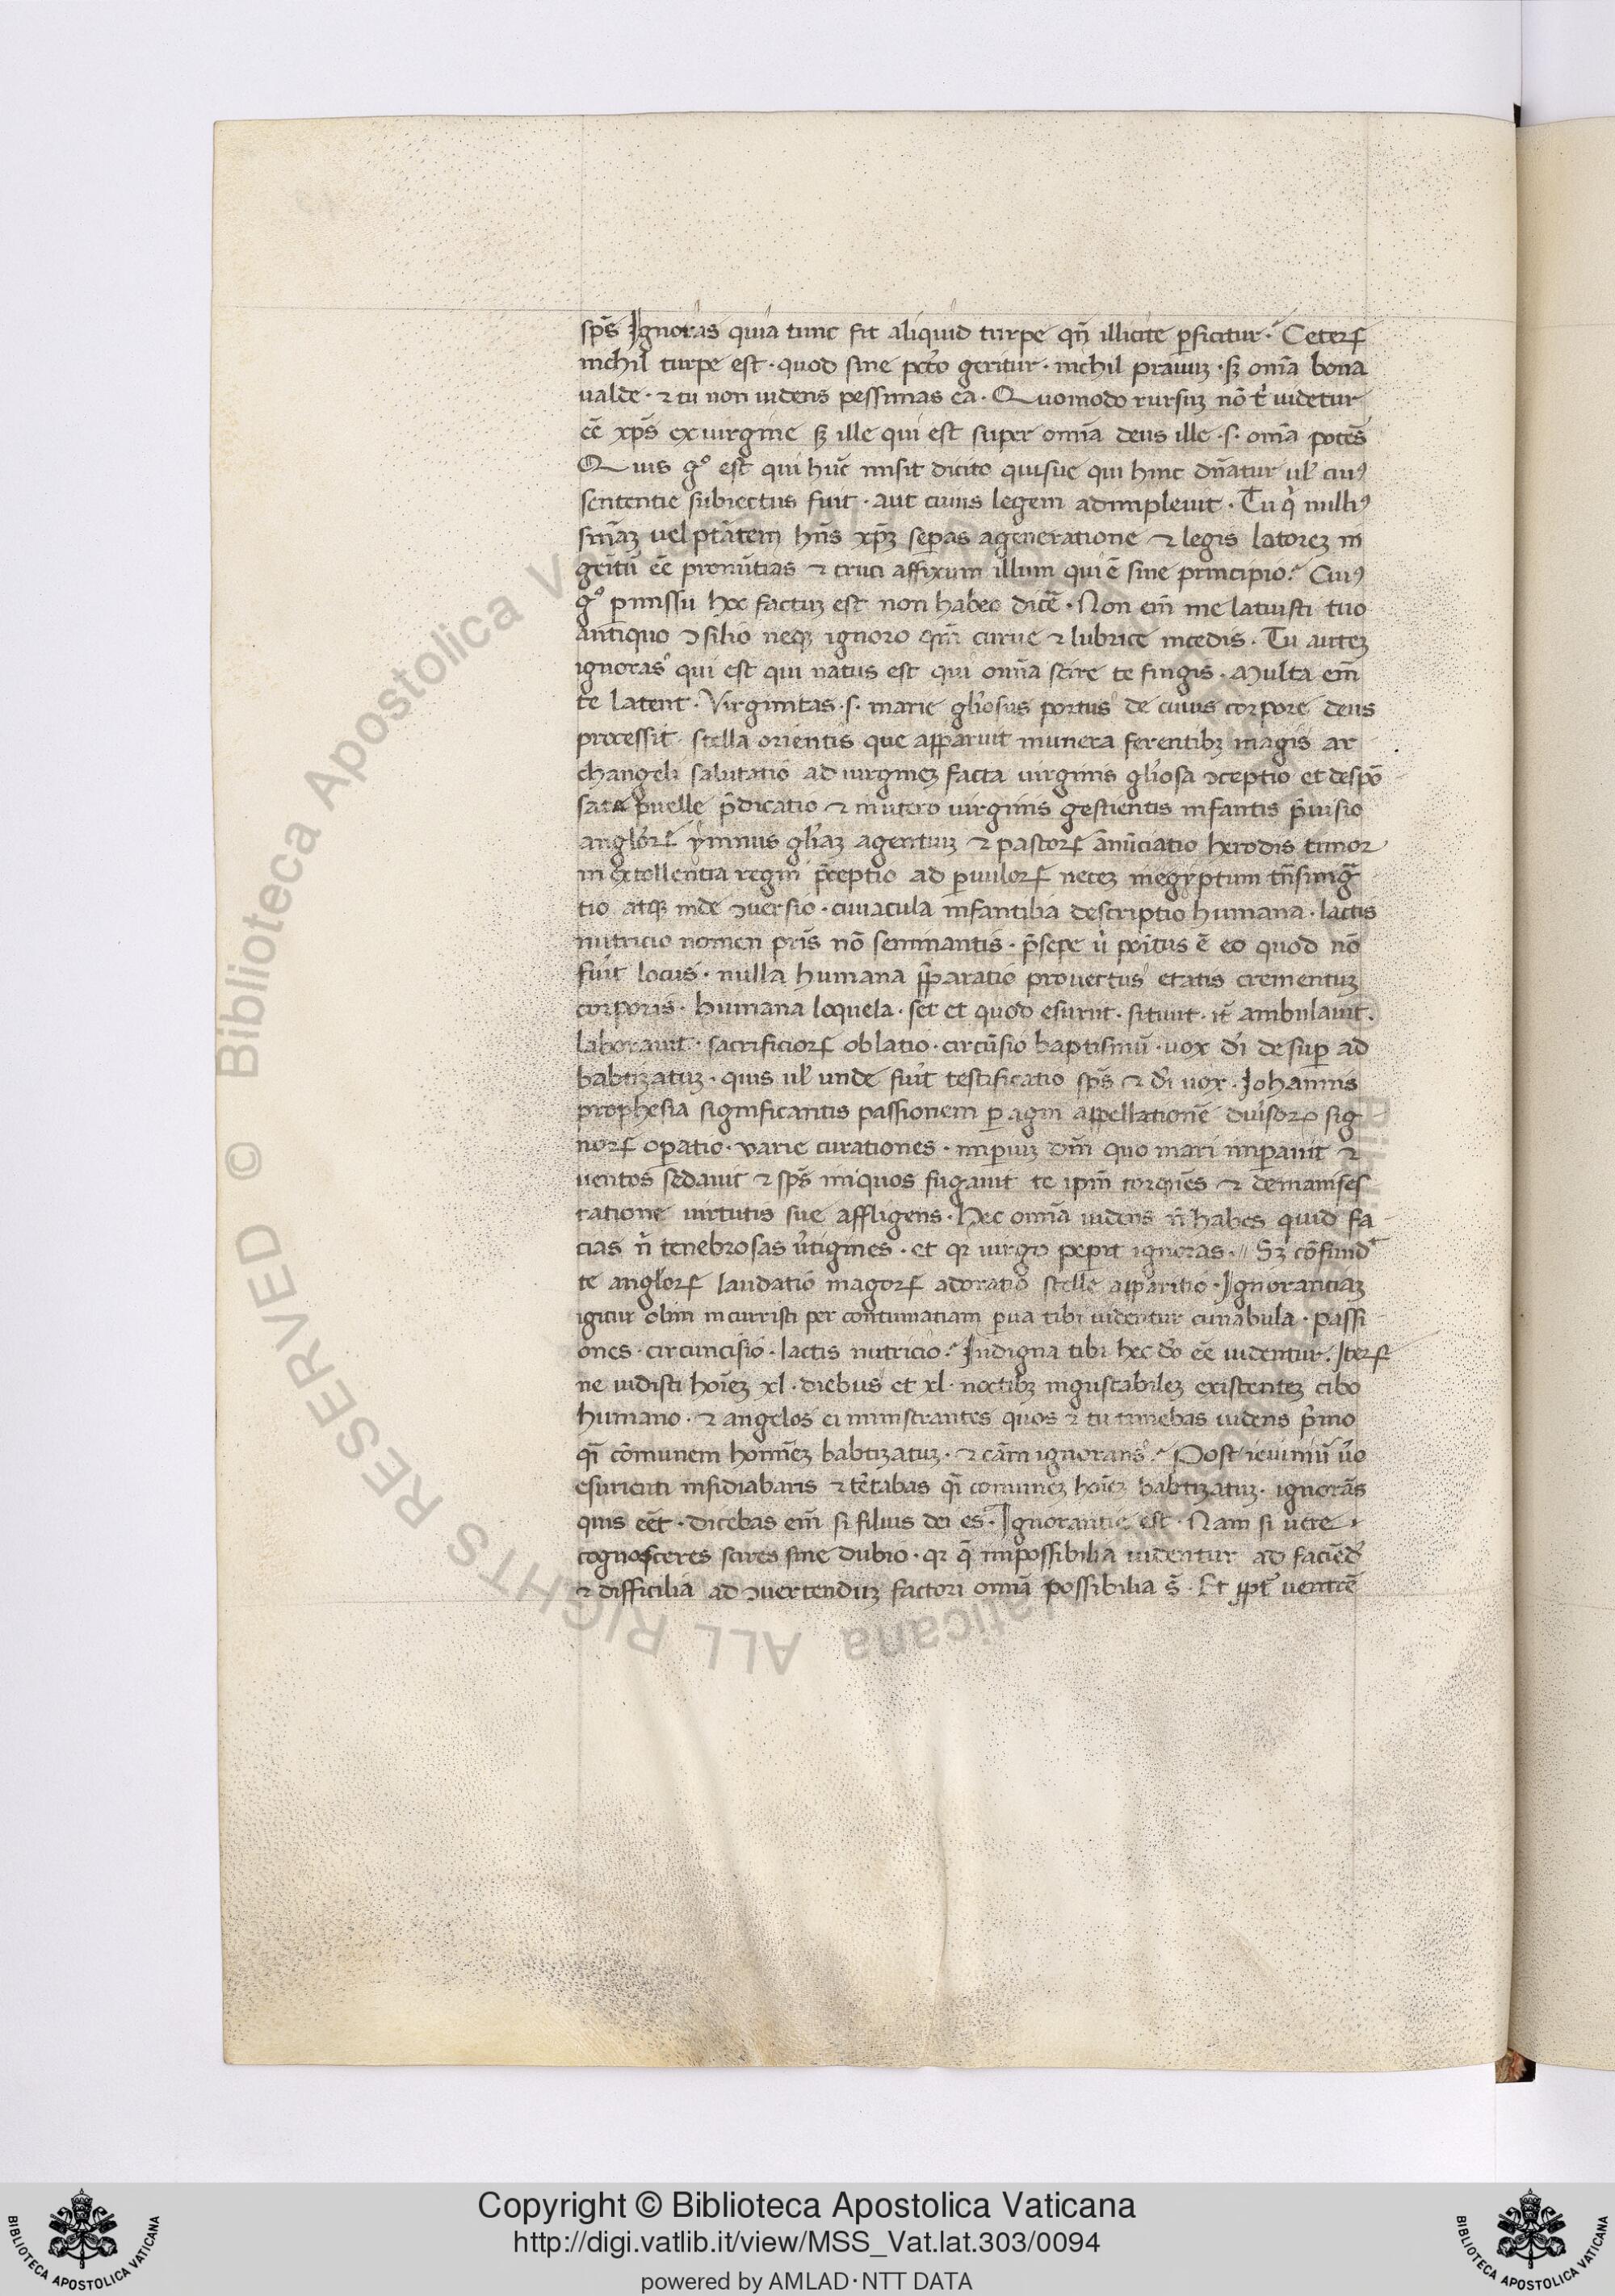 sp̄s Ignoras quia tunc fit aliquid turpe qn̄ illicite ꝑficitur. Ceterꝝ
nichil turpe est · quod sine pctō geritur · nichil prauuꝫ · sꝫ om̄ia bona
ualde · ⁊ tu non uidens pessimas ea. Quomodo rursuꝫ nō tͥ uidetur
eē xp̄s ex uirgine sꝫ ille qui est super om̄ia deus ille ·s· om̄ia potēs
Quis gͦ est qui hūc misit dicito quisue qui hinc dn̄atur ul̓ cuiꝰ
sententie subiectus fuit · aut cuius legem adimpleuit. Tu qͥ nulliꝰ
sm̄aꝫ uel ptātem hn̄s xp̄ꝫ seꝑas ageneratione ⁊ legis latoreꝫ in
geītū eē pronūtias ⁊ cruci affixum illum qui ē sine principio. Cuiꝰ
gͦ ꝑmissu hoc factuꝫ est non habeo dicē. Non em̄ me latuisti tuo
antiquo ꝯsilio neqꝫ ignoro qm̄ curue ⁊ lubrice incedis. Tu auteꝫ
ignoras qui est qui natus est qui om̄ia scire te fingis. Multa em̄
te latent. Virginitas ·s· marie gl̓iosus portus de cuius corpore deus
processit. stella orientis que apparuit munera ferentibꝫ magis ar
changeli salutatio ad uirgineꝫ facta uirginis gl̓iosa ꝯceptio et despō
sata puelle p̄dicatio ⁊ inutero uirginis gestientis infantis p̄uisio
angl̓orꝝ ymnus gl̓iaꝫ agentiuꝫ ⁊ pastorꝝ ānūciatio herodis timor
in extollentia regni p̄ceptio ad ꝑuulorꝝ neceꝫ inegyptum tn̄smigͣ
tio atqꝫ inde ꝯuersio · cuiacula infantilia descriptio humana · lactis
nutricio nomen pris̄ nō seminantis · p̄sepe u̓ poītus ē eo quod nō
fuit locus · nulla humana p̄paratio prouectus etatis crementuꝫ
corporis · humana loquela · set et quod esuriit · sitiuit · it̄ ambulauit.
laborauit · sacrificiorꝝ oblatio · circūsio baptismū · uox dī desuꝑ ad
babtizatuꝫ · quis ul̓ unde fuit testificatio sp̄s ⁊ dī uox. Iohannis
prophesia significantis passionem ꝑ agni appellationē diuīsorꝝ sig
norꝝ oꝑatio · varie curationes · imꝑiuꝫ dn̄i quo mari imꝑauit ⁊
uentos sedauit ⁊ sp̄s iniquos fugauit te ip̄m torquēs ⁊ demanifes
tatione uirtutis sue affligens. Hec om̄ia uidens n̄ habes quid fa
cias n̄ tenebrosas u̓tigines · et qꝛ uirgo peꝑit ignoras. // Sꝫ cōfundᵗ
te angl̓orꝝ laudatio magorꝝ adoratio stelle apparitio. Ignorantiaꝫ
igitur olim incurristi per contumatiam ꝑua tibi uidentur cunabula · passi
ones · circuncisio · lactis nutricio. Indigna tibi hec dō eē uidentur. Iterꝝ
ne uidisti hoīeꝫ xl · diebus et xl · noctibꝫ ingustabileꝫ existenteꝫ cibo
humano · ⁊ angelos ei ministrantes quos ⁊ tu timebas uidens p̄mo
qͣ cōmunem homineꝫ babtizatuꝫ · ⁊ cām ignorans. Post ieiuniū u̓o
esurienti insidiabaris ⁊ tētabas qͣ comuneꝫ hoīeꝫ babtizatuꝫ · ignorās
quis eēt · dicebas em̄ si filius dei es. Ignorantie est. Nam si uere
cognosceres scires sine dubio · qꝛ q̄ impossibilia uidentur ad faciēdͫ
⁊ difficilia ad ꝯuertenduꝫ factori om̄ia possibilia s̄. Et ꝓpt̓ uentrē
Copyright © Biblioteca Apostolica Vaticana
http://digi.vatlib.it/view/MSS_Vat.lat.303/0094
powered by AMLAD·NTT DATA